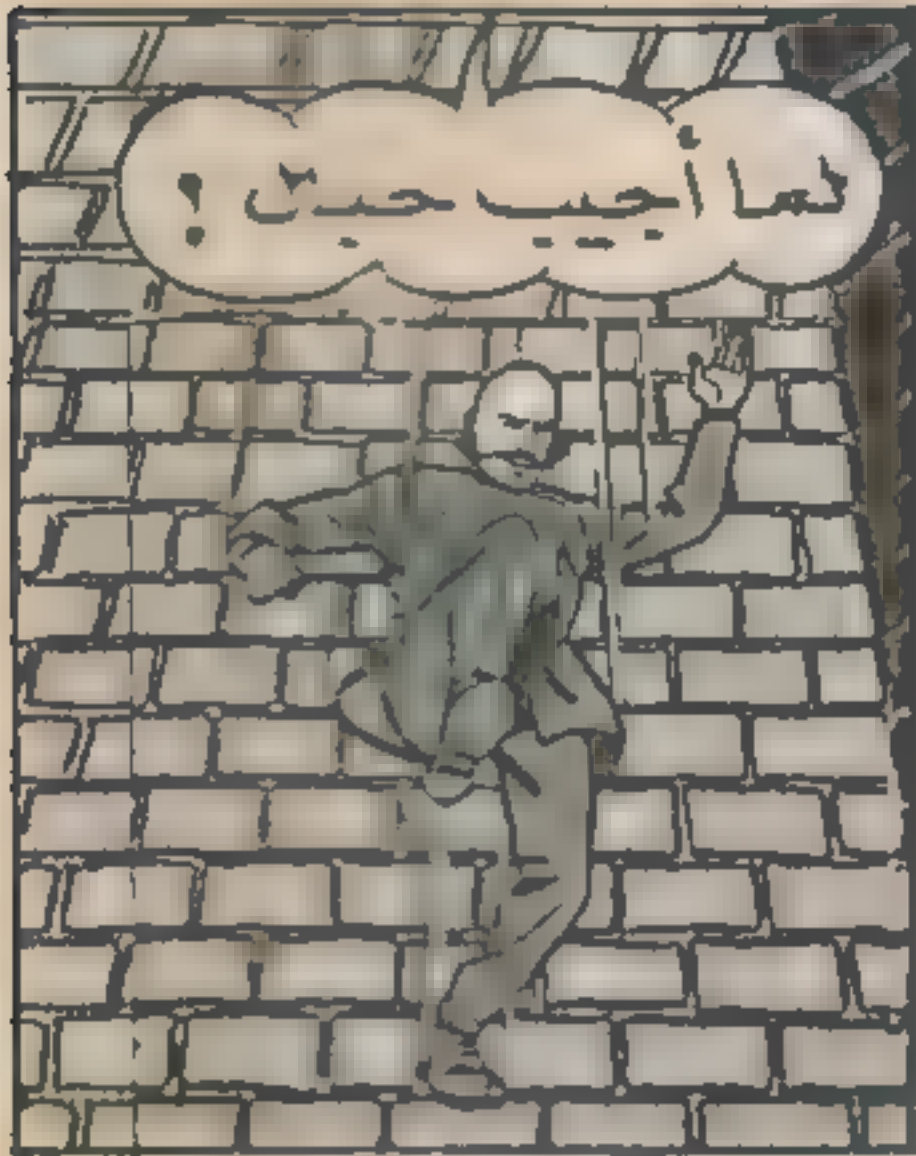 لما أجيب حبل !